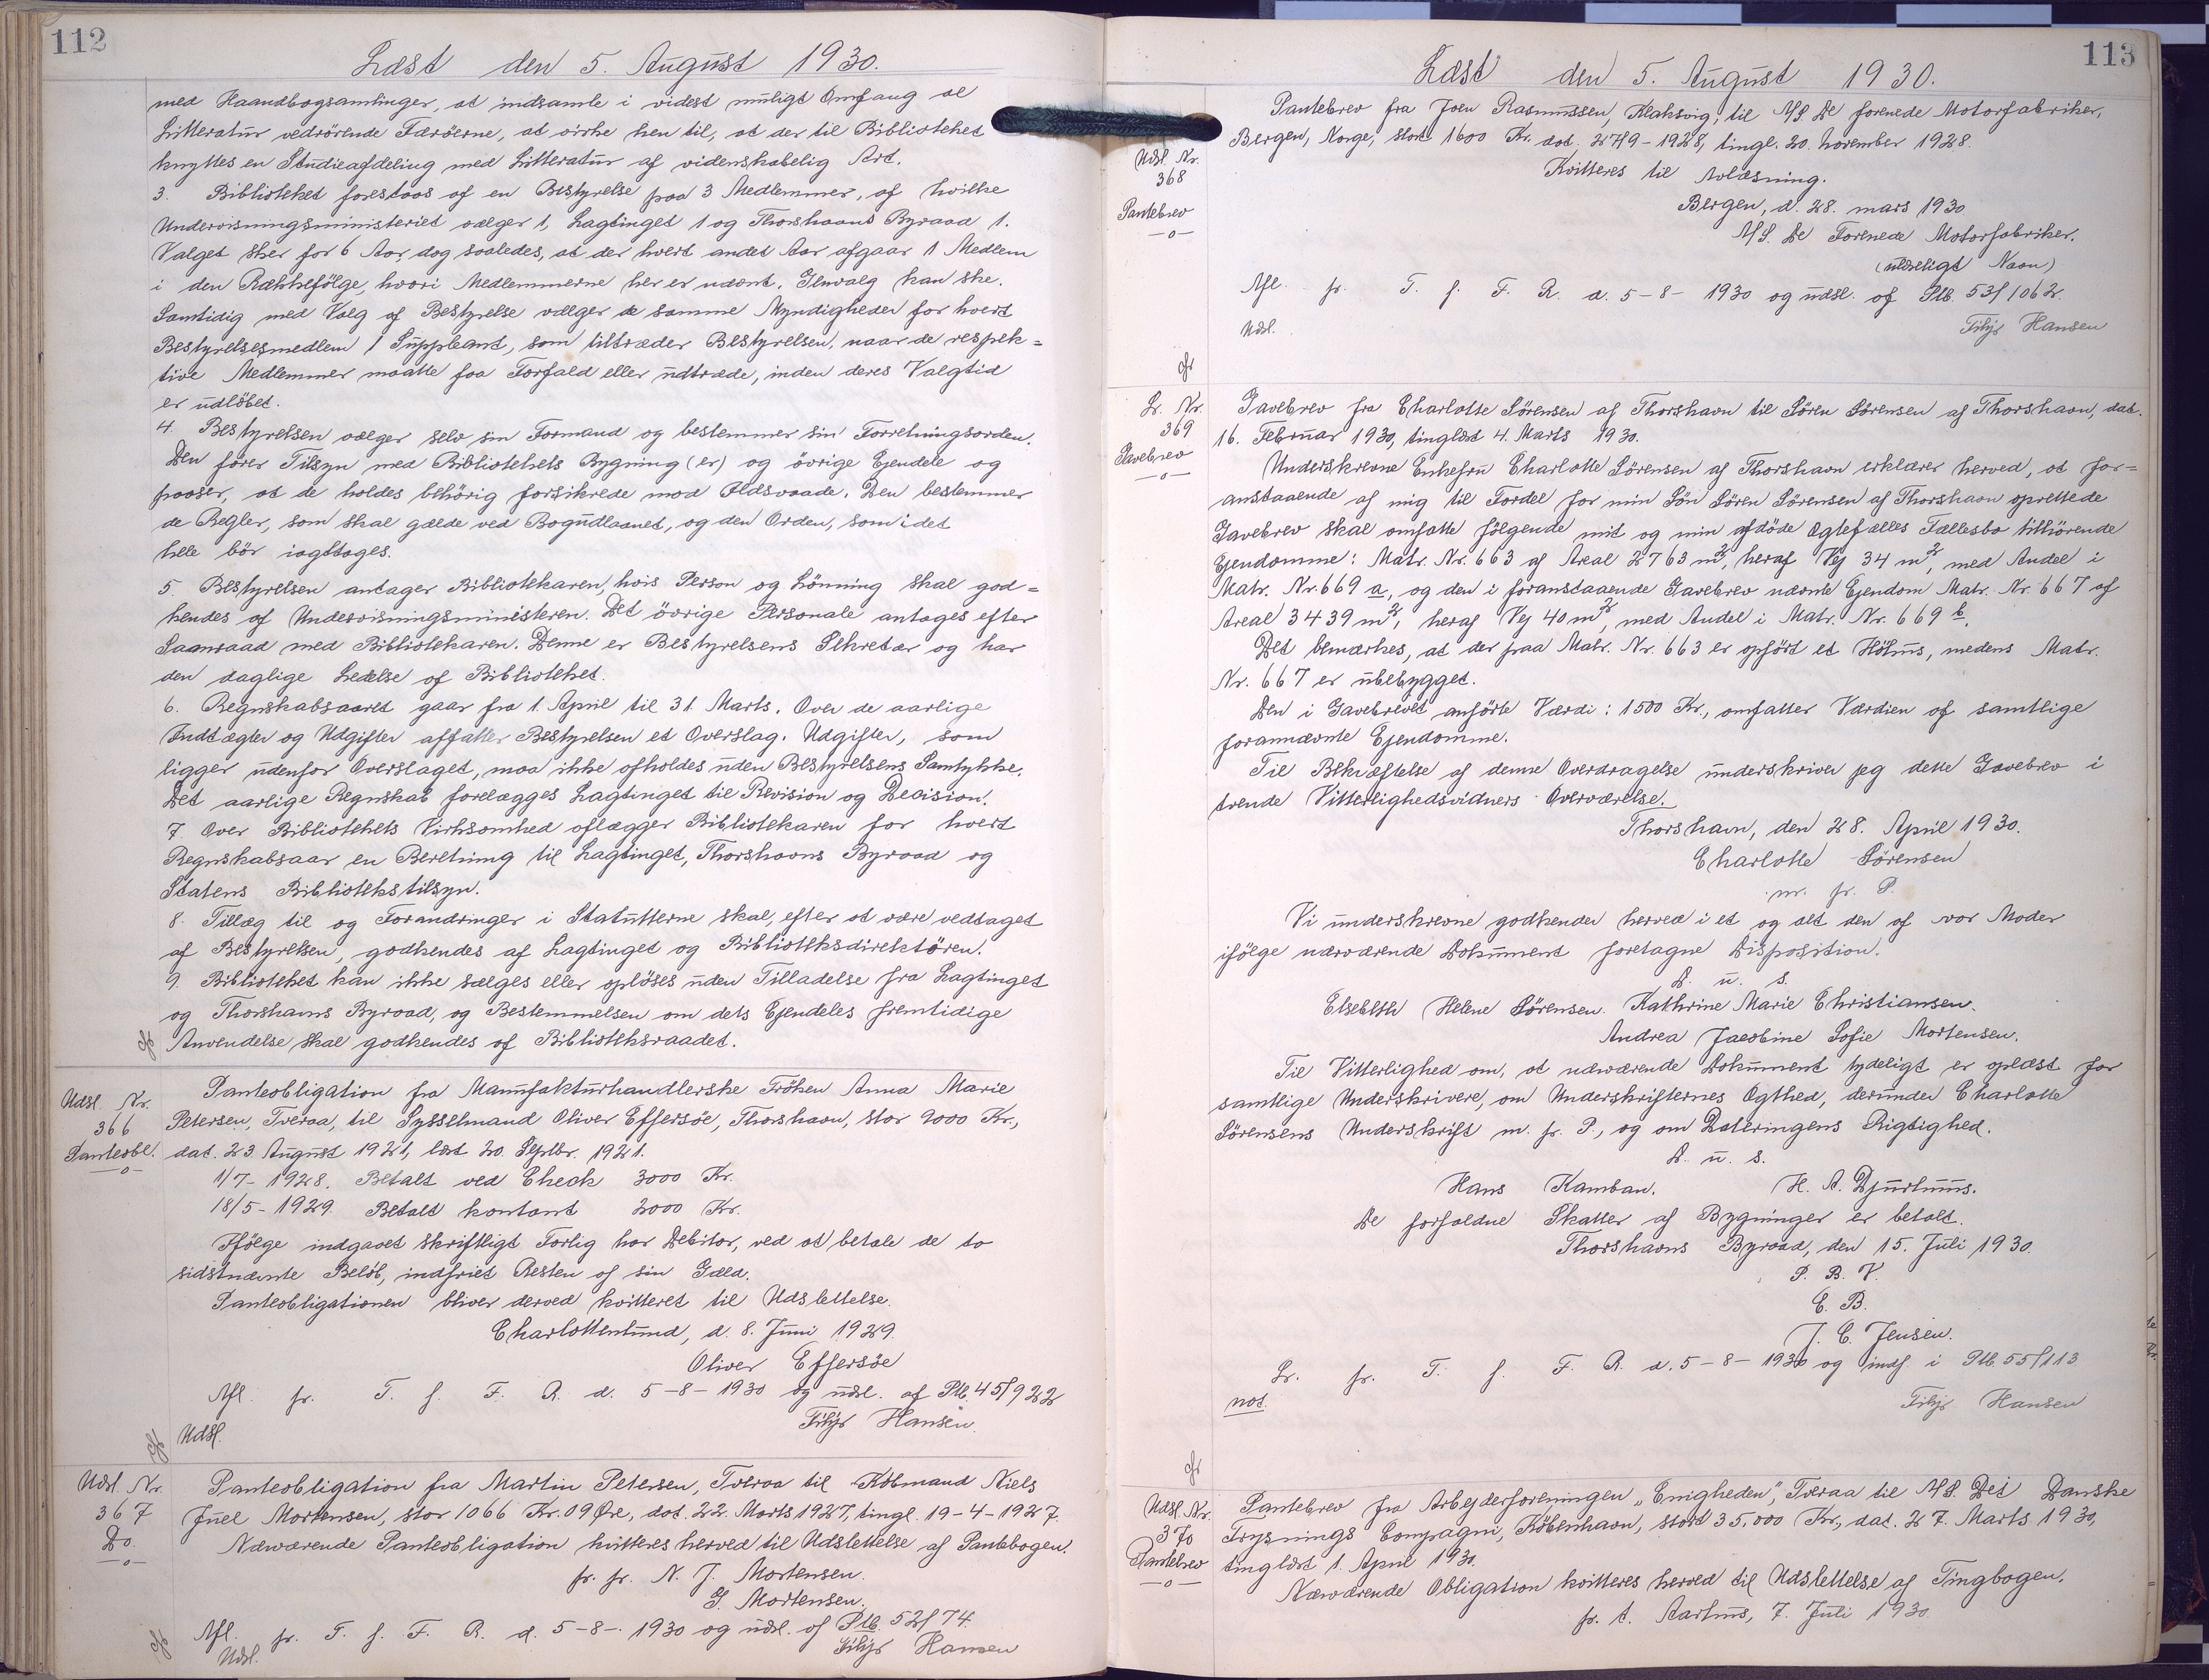 112
Læst den 5. August 1930.
med Haandbogsamlinger, at indsamle i videst muligt Omfang al
Litteratur vedrörende Færöerne, at virke hen til, at der til Biblioteket
knyttes en Studieafdeling med Litteratur af videnskabelig Art.
3. Biblioteket forestaas af en Bestyrelse paa 3 Medlemmer, af hvilke
Undervisningsministeriet vælger 1, Lagtinget 1 og Thorshavns Byraad 1.
Valget sker for 6 Aar, dog saaledes, at der hvert andet Aar afgaar 1 Medlem
i den Rækkefölge, hvori Medlemmerne her er nævnt. Genvalg kan ske.
Samtidig med Valg af Bestyrelse vælger de samme Myndigheder for hvert
Bestyrelsesmedlem 1 Suppleant, som tiltræder Bestyrelsen, naar de respek=
tive Medlemmer maatte faa Forfald eller udtræde, inden deres Valgtid
er udlöbet.
4. Bestyrelsen vælger selv sin Formand og bestemmer sin Forretningsorden.
Den förer Tilsyn med Bibliotekets Bygning (er) og övrige Ejendele og
paaser, at de holdes behörig forsikrede mod Ildsvaade. Den bestemmer
de Regler, som skal gælde ved Bogudlaanet, og den Orden, som i det
hele bör iagttages.
5. Bestyrelsen antager Bibliotekaren, hvis Person og Lönning skal god=
kendes af Undervisningsministeren. Det övrige Personale antages efter
Samraad med Bibliotekaren. Denne er Bestyrelsens Sekretær og har
den daglige Ledelse af Biblioteket.
6. Regnskabsaaret gaar fra 1. April til 31. Marts. Over de aarlige
Indtægter og Udgifter affatter Bestyrelsen et Overslag. Udgifter, som
ligger udenfor Overslaget, maa ikke afholdes uden Bestyrelsens Samtykke.
Det aarlige Regnskab forelægges Lagtinget til Revision og Decision.
7. Over Bibliotekets Virksomhed aflægger Bibliotekaren for hvert
Regnskabsaar en Beretning til Lagtinget, Thorshavns Byraad og
Statens Bibliotekstilsyn.
8. Tillæg til og Forandringer i Statutterne skal, efter at være vedtaget
af Bestyrelsen, godkendes af Lagtinget og Biblioteksdirektören.
9. Biblioteket kan ikke sælges eller oplöses uden Tilladelse fra Lagtinget
og Thorshavns Byraad, og Bestemmelsen om dets Ejendeles fremtidige
Anvendelse skal godkendes af Biblioteksraadet.
Udsl. Nr.
366
Panteobl.
—o—
Panteobligation fra Manufakturhandlerske Fröken Anna Marie
Petersen, Tveraa, til Sysselmand Oliver Effersöe, Thorshavn, stor 9000 Kr.,
dat. 23. August 1921, læst 20. Septbr. 1921.
1/7- 1928. Betalt ved Check 3000 Kr.
18/5- 1929. Betalt kontant 2000 Kr.
Ifölge indgaaet skriftligt Forlig har Debitor, ved at betale de to
sidstnævnte Belöb, indfriet Resten af sin Gæld.
Panteobligationen bliver derved kvitteret til Udslettelse.
Charlottenlund, d. 8. Juni 1929.
Oliver Effersöe
Afl. fr. T. f. F. R. d. 5-8-1930 og udsl. af Ptb. 45/922
Udsl.
Filijs Hansen.
Udsl. Nr.
367
Do.
—o—
Panteobligation fra Martin Petersen, Tveraa til Köbmand Niels
Juel Mortensen, stor 1066 Kr. 09 Øre, dat. 22. Marts 1927, tingl. 19-4-1927.
Nærværende Panteobligation kvitteres herved til Udslettelse af Pantebogen.
pr. pr. N. J. Mortensen.
G. Mortensen.
Afl. fr. T. f. F. R. d. 5-8-1930 og udsl. af Ptb. 52/74.
Udsl.
Filijs Hansen
113
Læst den 5. August 1930.
Udsl. Nr.
368
Pantebrev
—o—
Pantebrev fra Joen Rasmussen, Klaksvig, til A/S De forenede Motorfabriker,
Bergen, Norge, stort 1600 Kr. dat. 27/9-1928, tingl. 20. November 1928.
Kvitteres til Avlæsning.
Bergen, d. 28. mars 1930
A/S. De Forenede Motorfabriker.
(ulæseligt Navn)
Afl. fr. T. f. F. R. d. 5-8-1930 og udsl. af Ptb. 53/1062.
Udsl.
Filijs Hansen
Lr. Nr.
369
Gavebrev
—o—
Gavebrev fra Charlotte Sörensen af Thorshavn til Sören Sörensen af Thorshavn, dat.
16. Februar 1930, tinglæst 4. Marts 1930.
Underskrevne Enkefru Charlotte Sörensen af Thorshavn erklærer herved, at for=
anstaaende af mig til Fordel for min Sön Sören Sörensen af Thorshavn oprettede
Gavebrev skal omfatte fölgende mit og min afdöde Ægtefælles Fællesbo tilhörende
Ejendomme: Matr. Nr. 663 af Areal 2763 m², heraf Vej 34 m², med Andel i
Matr. Nr. 669 a, og den i foranstaaende Gavebrev nævnte Ejendom Matr. Nr. 667 af
Areal 3439 m², heraf Vej 40 m², med Andel i Matr. Nr. 669 b.
Det bemærkes, at der paa Matr. Nr. 663 er opfört et Höhus, medens Matr.
Nr. 667 er ubebygget.
Den i Gavebrevet anförte Værdi: 1500 Kr., omfatter Værdien af samtlige
forannævnte Ejendomme.
Til Bekræftelse af denne Overdragelse underskriver jeg dette Gavebrev i
trende Vitterlighedsvidners Overværelse.
Thorshavn, den 28. April 1930.
Charlotte Sörensen
m. fr. P.
Vi underskrevne godkender herved i et og alt den af vor Moder
ifölge nærværende Dokument foretagne Disposition.
D. u. s.
Elsebeth Helene Sörensen. Kathrine Marie Christiansen.
Andrea Jacobine Sofie Mortensen.
Til Vitterlighed om, at nærværende Dokument tydeligt er oplæst for
samtlige Underskrivere, om Underskrifternes Ægthed, derunder Charlotte
Sörensens Underskrift m. fr. P., og om Dateringens Rigtighed.
D. u. s.
Hans Kamban. H. A. Djurhuus.
De forfaldne Skatter af Bygninger er betalt.
Thorshavns Byraad, den 15. Juli 1930.
P. B. V.
E. B.
J. C. Jensen.
Lr. fr. T. f. F. R. d. 5-8-1930 og indf. i Ptb. 55/113
not.
Filijs Hansen
Udsl. Nr.
370
Pantebrev
—o—
Pantebrev fra Arbejderforeningen „Enigheden“, Tveraa til A/S. Det Danske
Frysnings Compagni, Köbenhavn, stort 35,000 Kr., dat. 27. Marts 1930,
tinglæst 1. April 1930.
Nærværende Obligation kvitteres herved til Udslettelse af Tingbogen.
pr. t. Aarhus, 7. Juli 1930.